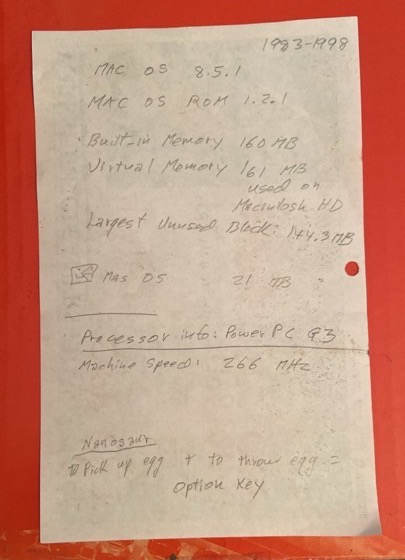 1983-1998
MAC OS 8.5.1
MAC OS ROM 1.2.1
Built-in Memory 160 MB
Virtual Memory 161 MB
used on
Macintosh HD
Largest Unused Block: 144.3 MB
Mac OS 21 MB
Processor info: Power PC G3
Machine Speed: 266 MHz
Nanosaur
To Pick up egg + to throw egg =
Option Key